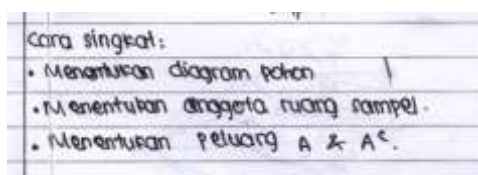 cara singkat:
• Menentukan diagram pohon
• Menentukan anggota ruang sampel.
• Menentukan peluang A & Aᶜ.